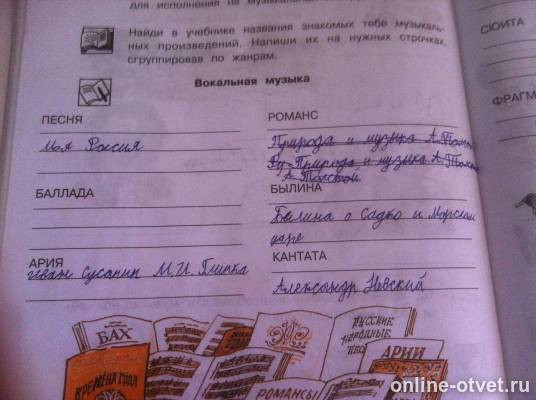 для исполнения на музыкальн
Найди в учебнике названия знакомых тебе музыкаль-
ных произведений. Напиши их на нужных строчках,
сгруппировав по жанрам.
Вокальная музыка
ПЕСНЯ
Моя Россия
БАЛЛАДА
АРИЯ
Иван Сусанин М.И. Глинка
РОМАНС
Природа и музыка А. Толст
Природа и музыка А. Толст
А. Толстой
БЫЛИНА
Былина о Садко и Морском
царе
КАНТАТА
Александр Невский
СЮИТА
ФРАГМ
БАХ
ВРЕМЕНА ГОДА
РОМАНСЫ
РУССКИЕ
НАРОДНЫЕ
ПЕС
АРИИ
online-otvet.ru